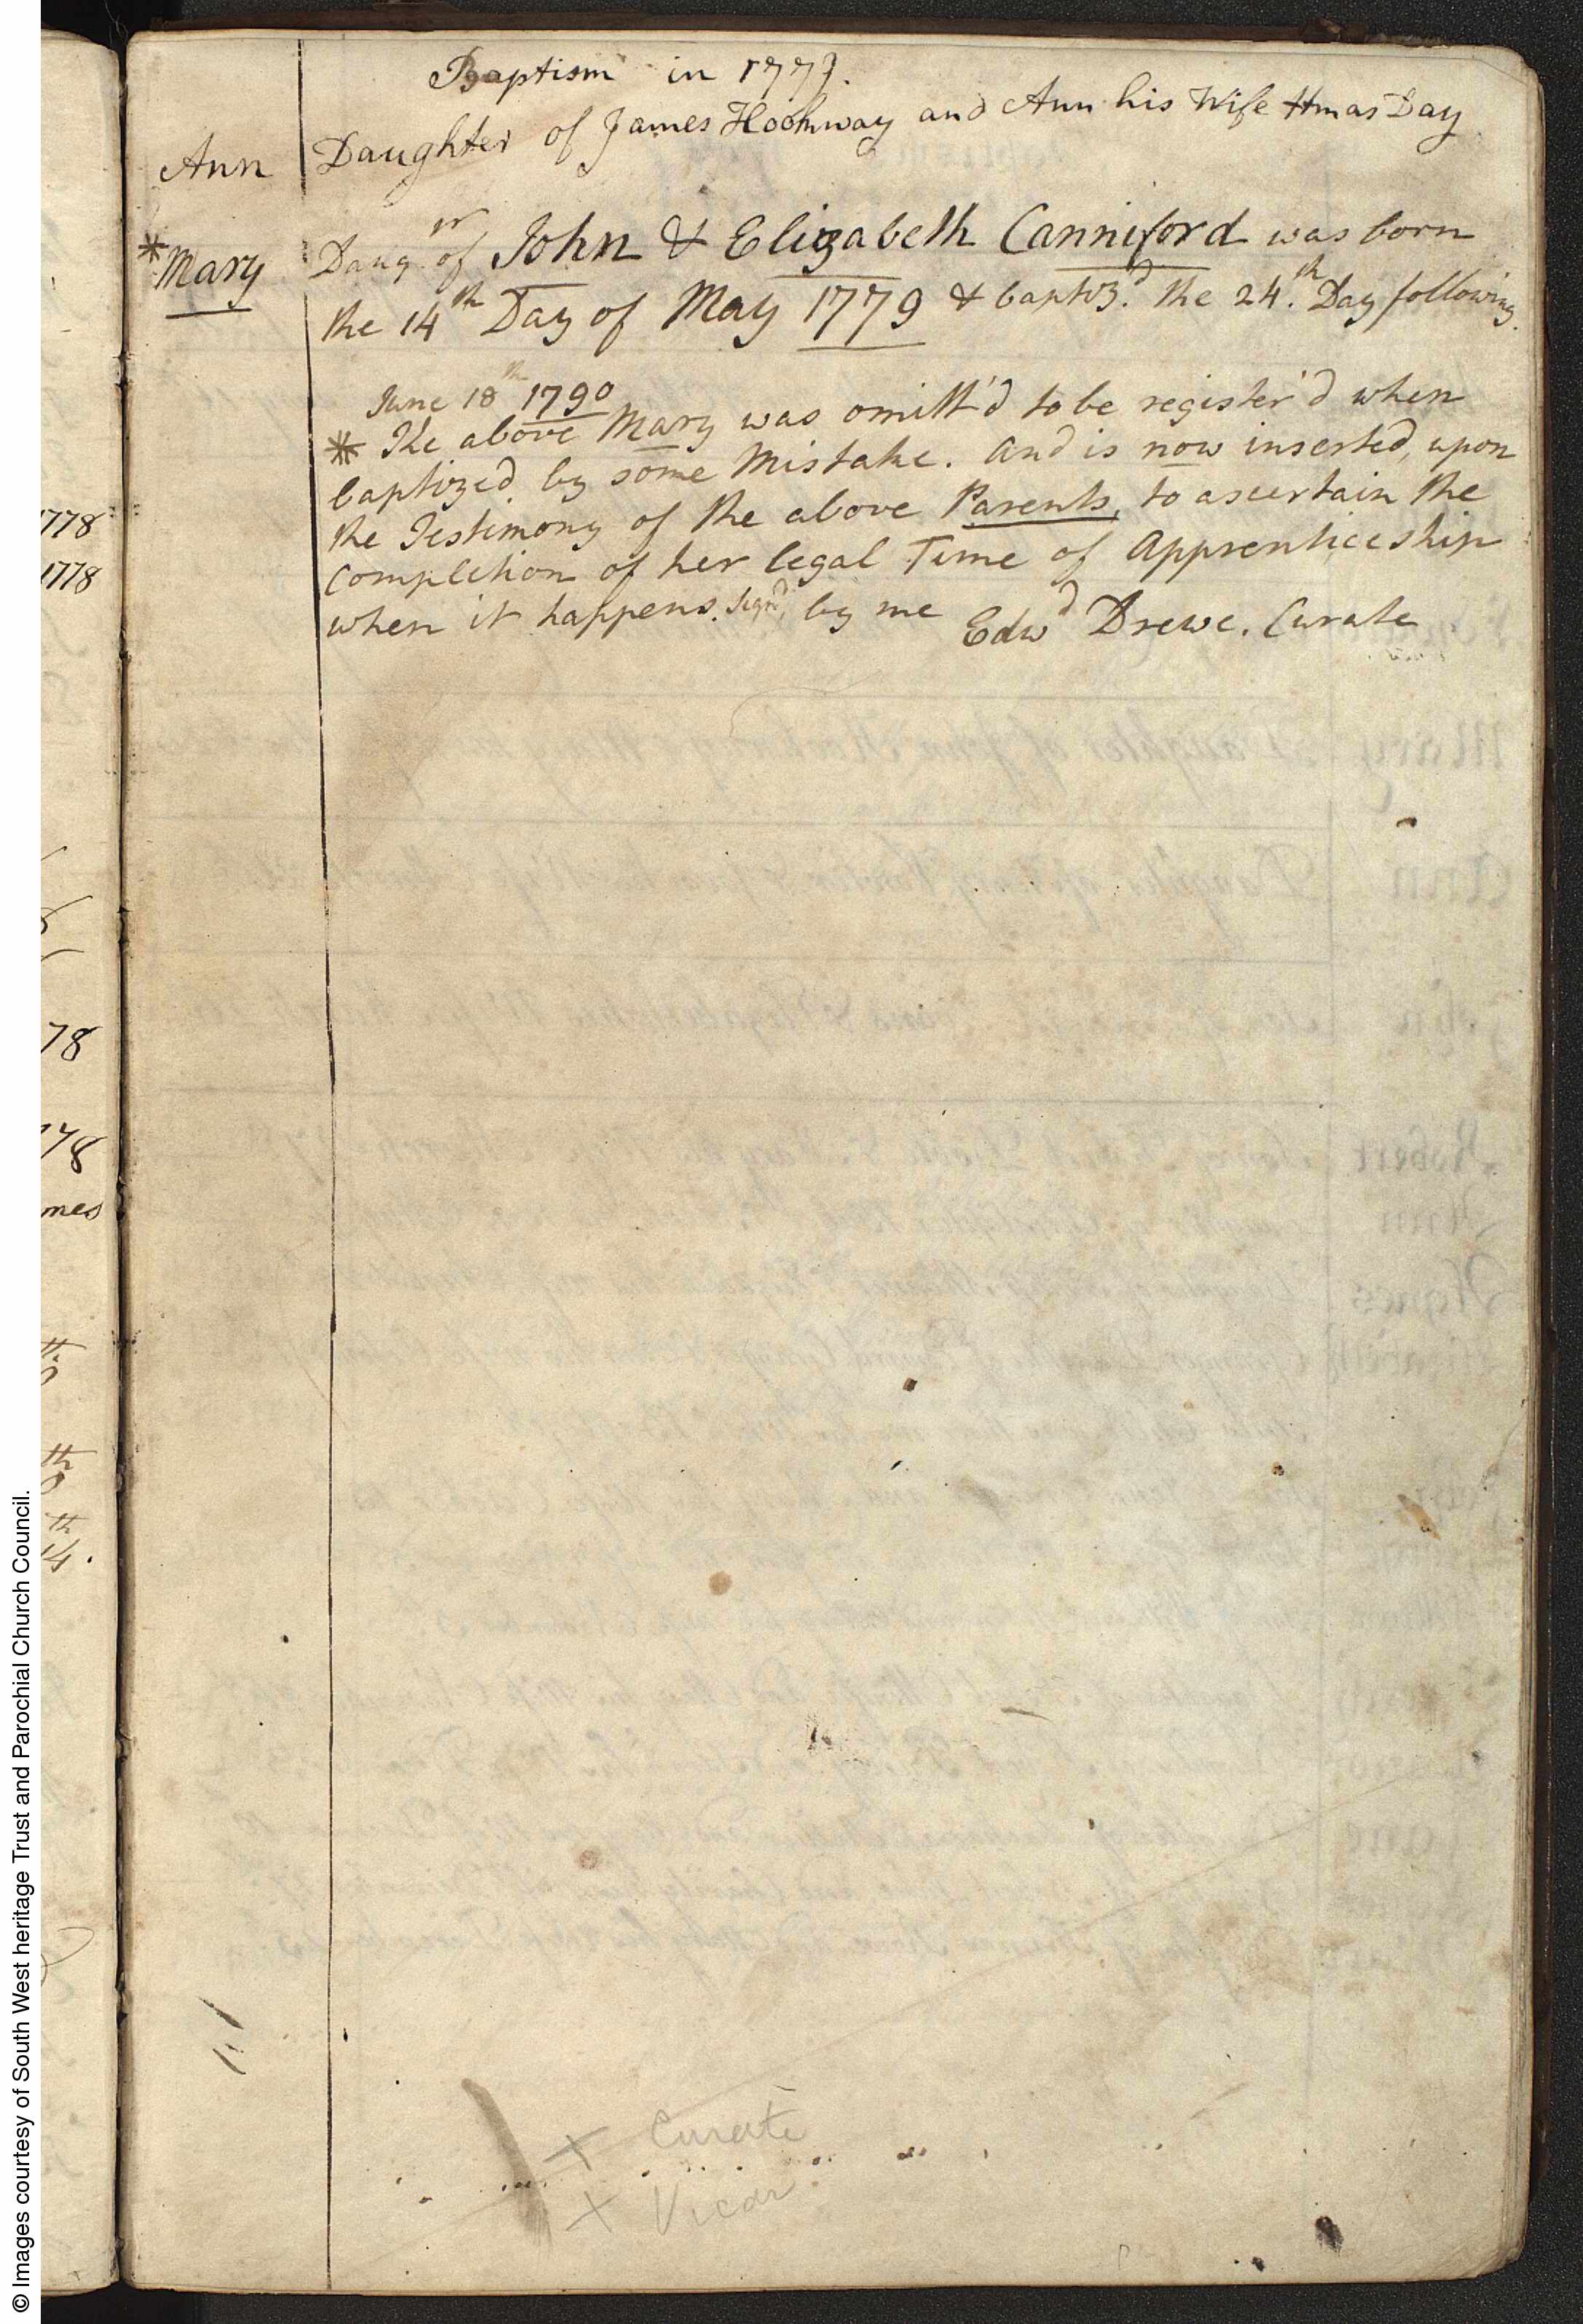 Baptism in 1777.
Ann Daughter of James Hookway and Ann his Wife Xmas Day
* Mary Daugtr of John & Elizabeth Canniford was born
the 14th Day of May 1779 & baptiz'd the 24th Day following.
June 18th 1790
* The above Mary was omitt'd to be register'd when
baptized by some Mistake. And is now inserted, upon
the Testimony of the above Parents, to ascertain the
Completion of her legal Time of Apprenticeship
when it happens. Sign'd, by me Edwd Drewe. Curate
1778
1778
78
78
mes
th
th
th
14.
+ Curate
+ Vicar
© Images courtesy of South West heritage Trust and Parochial Church Council.